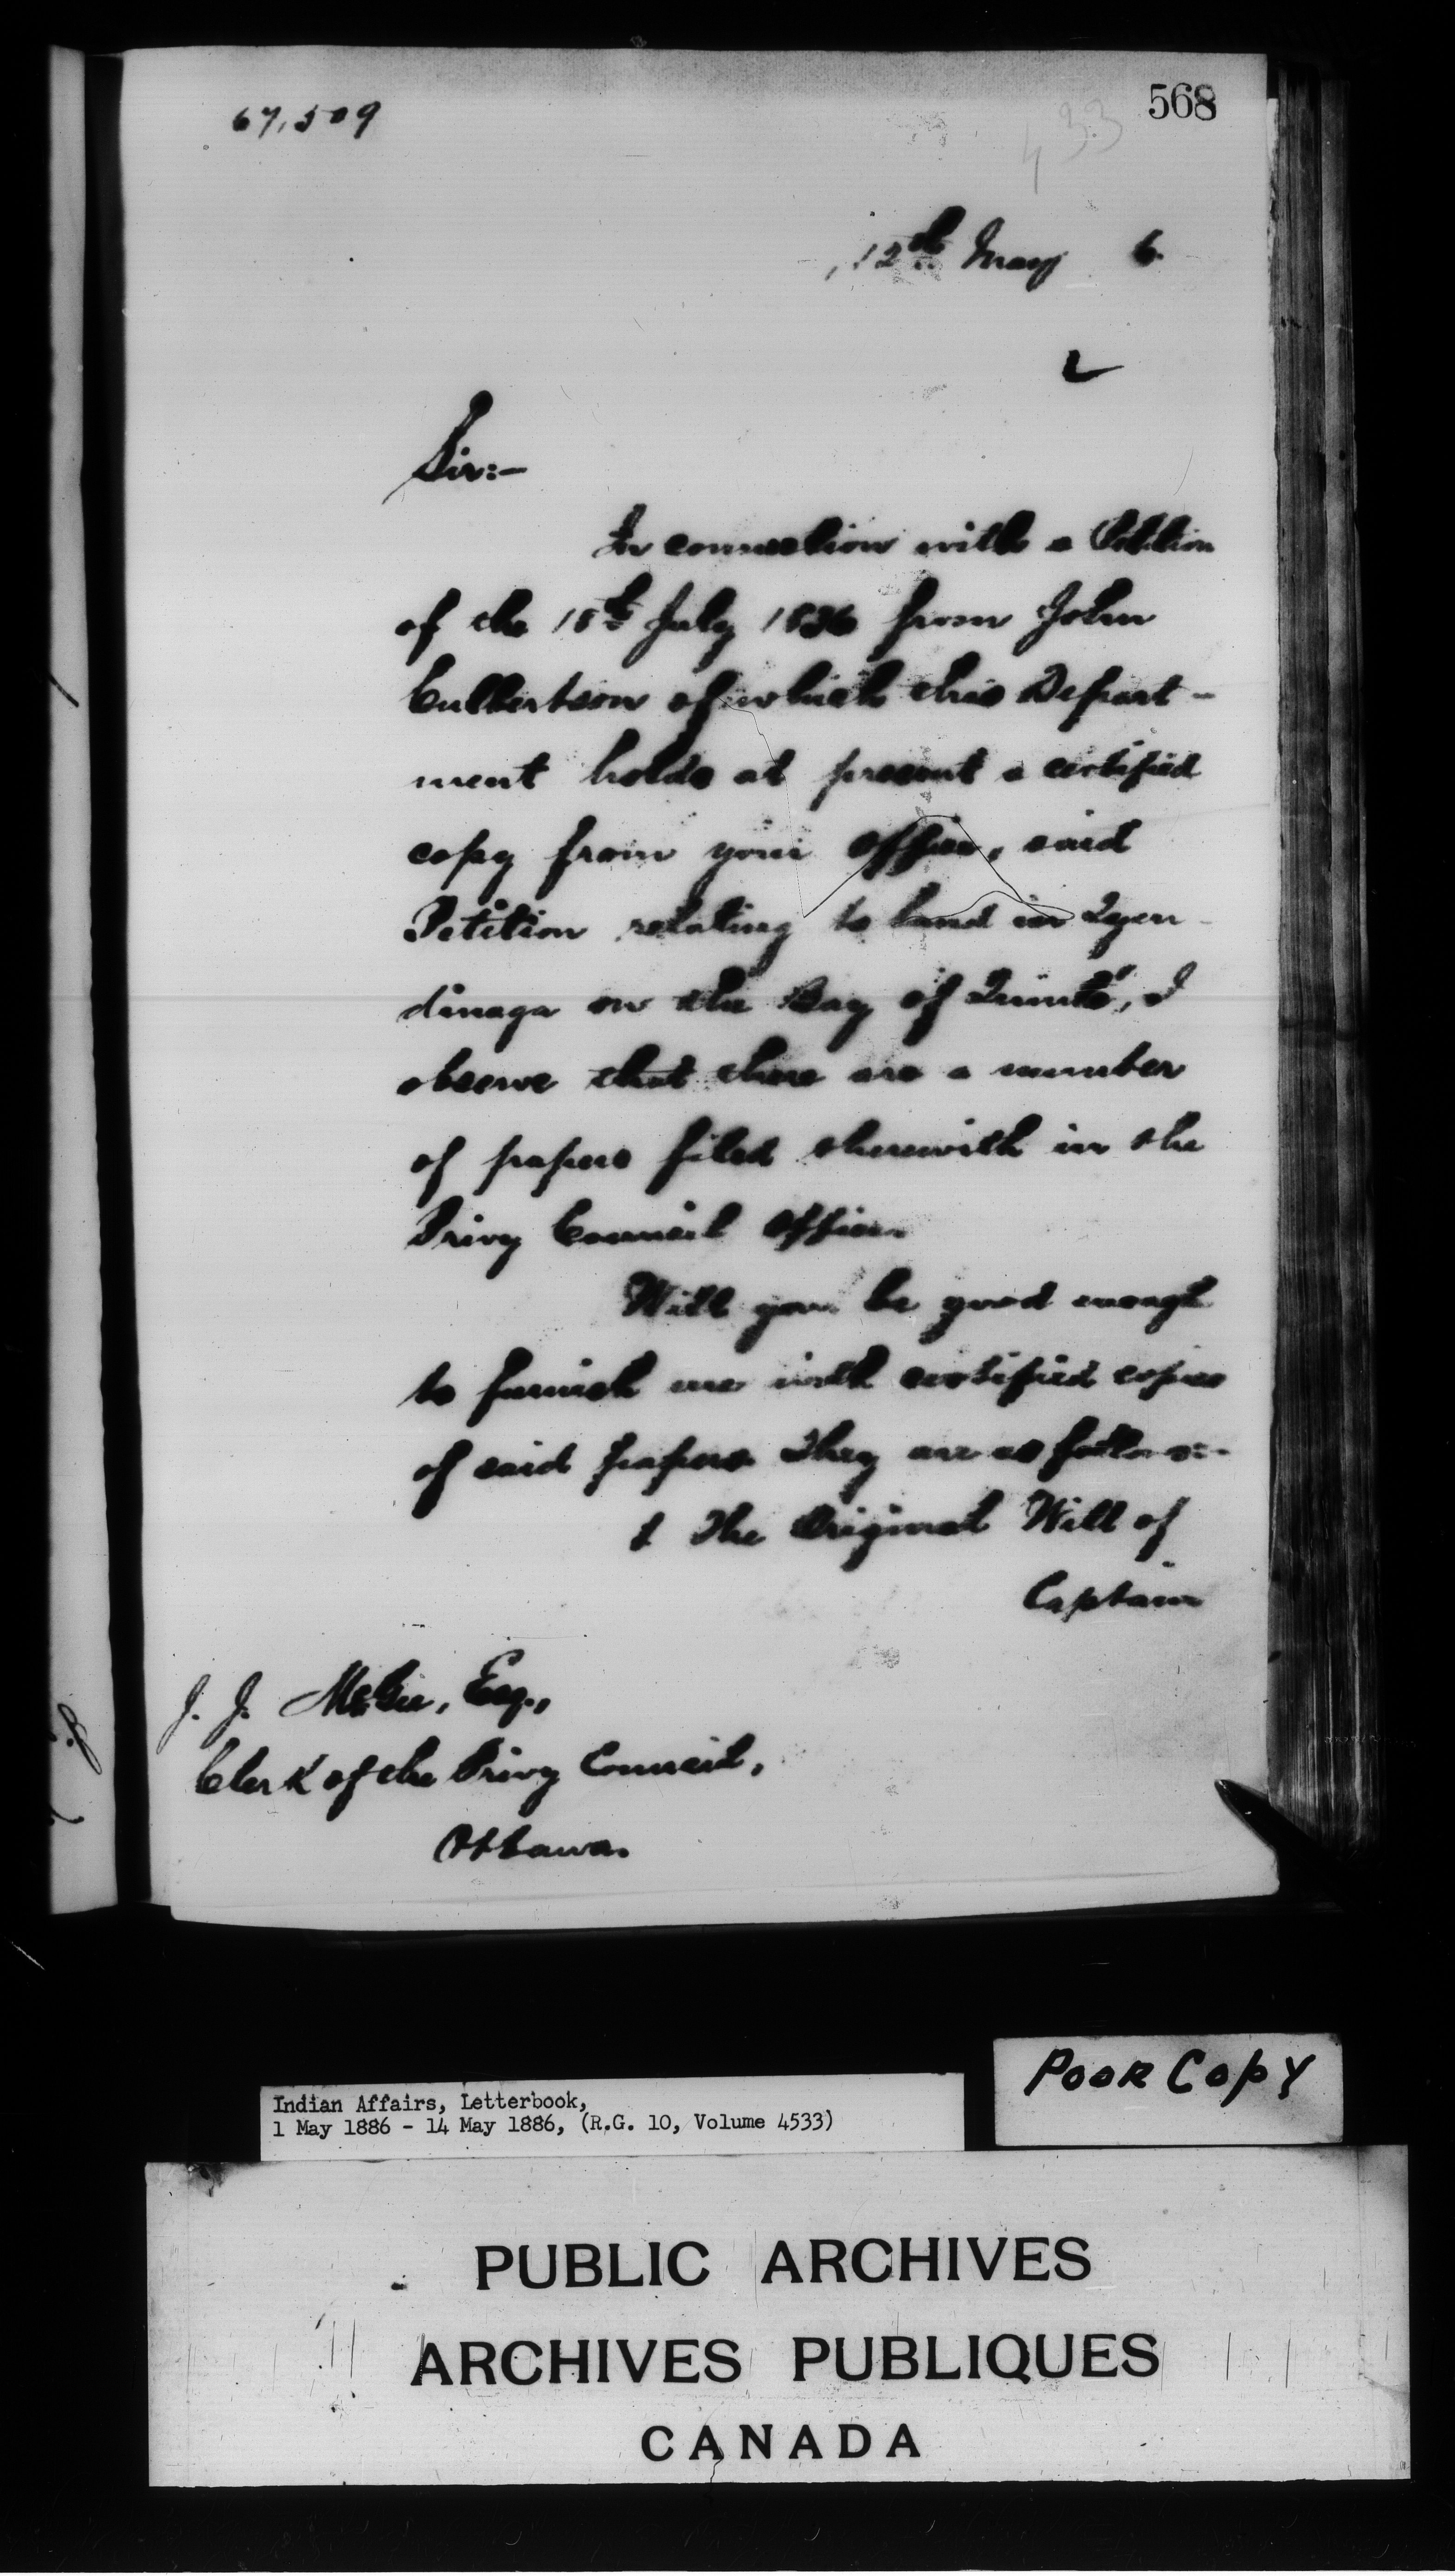 67,509
568
433
12th May 6
Sir:-
In connection with a Petition
of the 18th July 1836 from John
Culbertson of which this Depart-
ment holds at present a certified
copy from your office, said
Petition relating to land in Tyen-
dinaga on the Bay of Quinté, I
observe that there are a number
of papers filed therewith in the
Privy Council Office.
Will you be good enough
to furnish me with certified copies
of said papers They are as follows:-
1 The Original Will of
Captain
J. J. McGee, Esq.,
Clerk of the Privy Council,
Ottawa.
POOR COPY
Indian Affairs, Letterbook,
1 May 1886 - 14 May 1886, (R.G. 10, Volume 4533)
PUBLIC ARCHIVES
ARCHIVES PUBLIQUES
CANADA